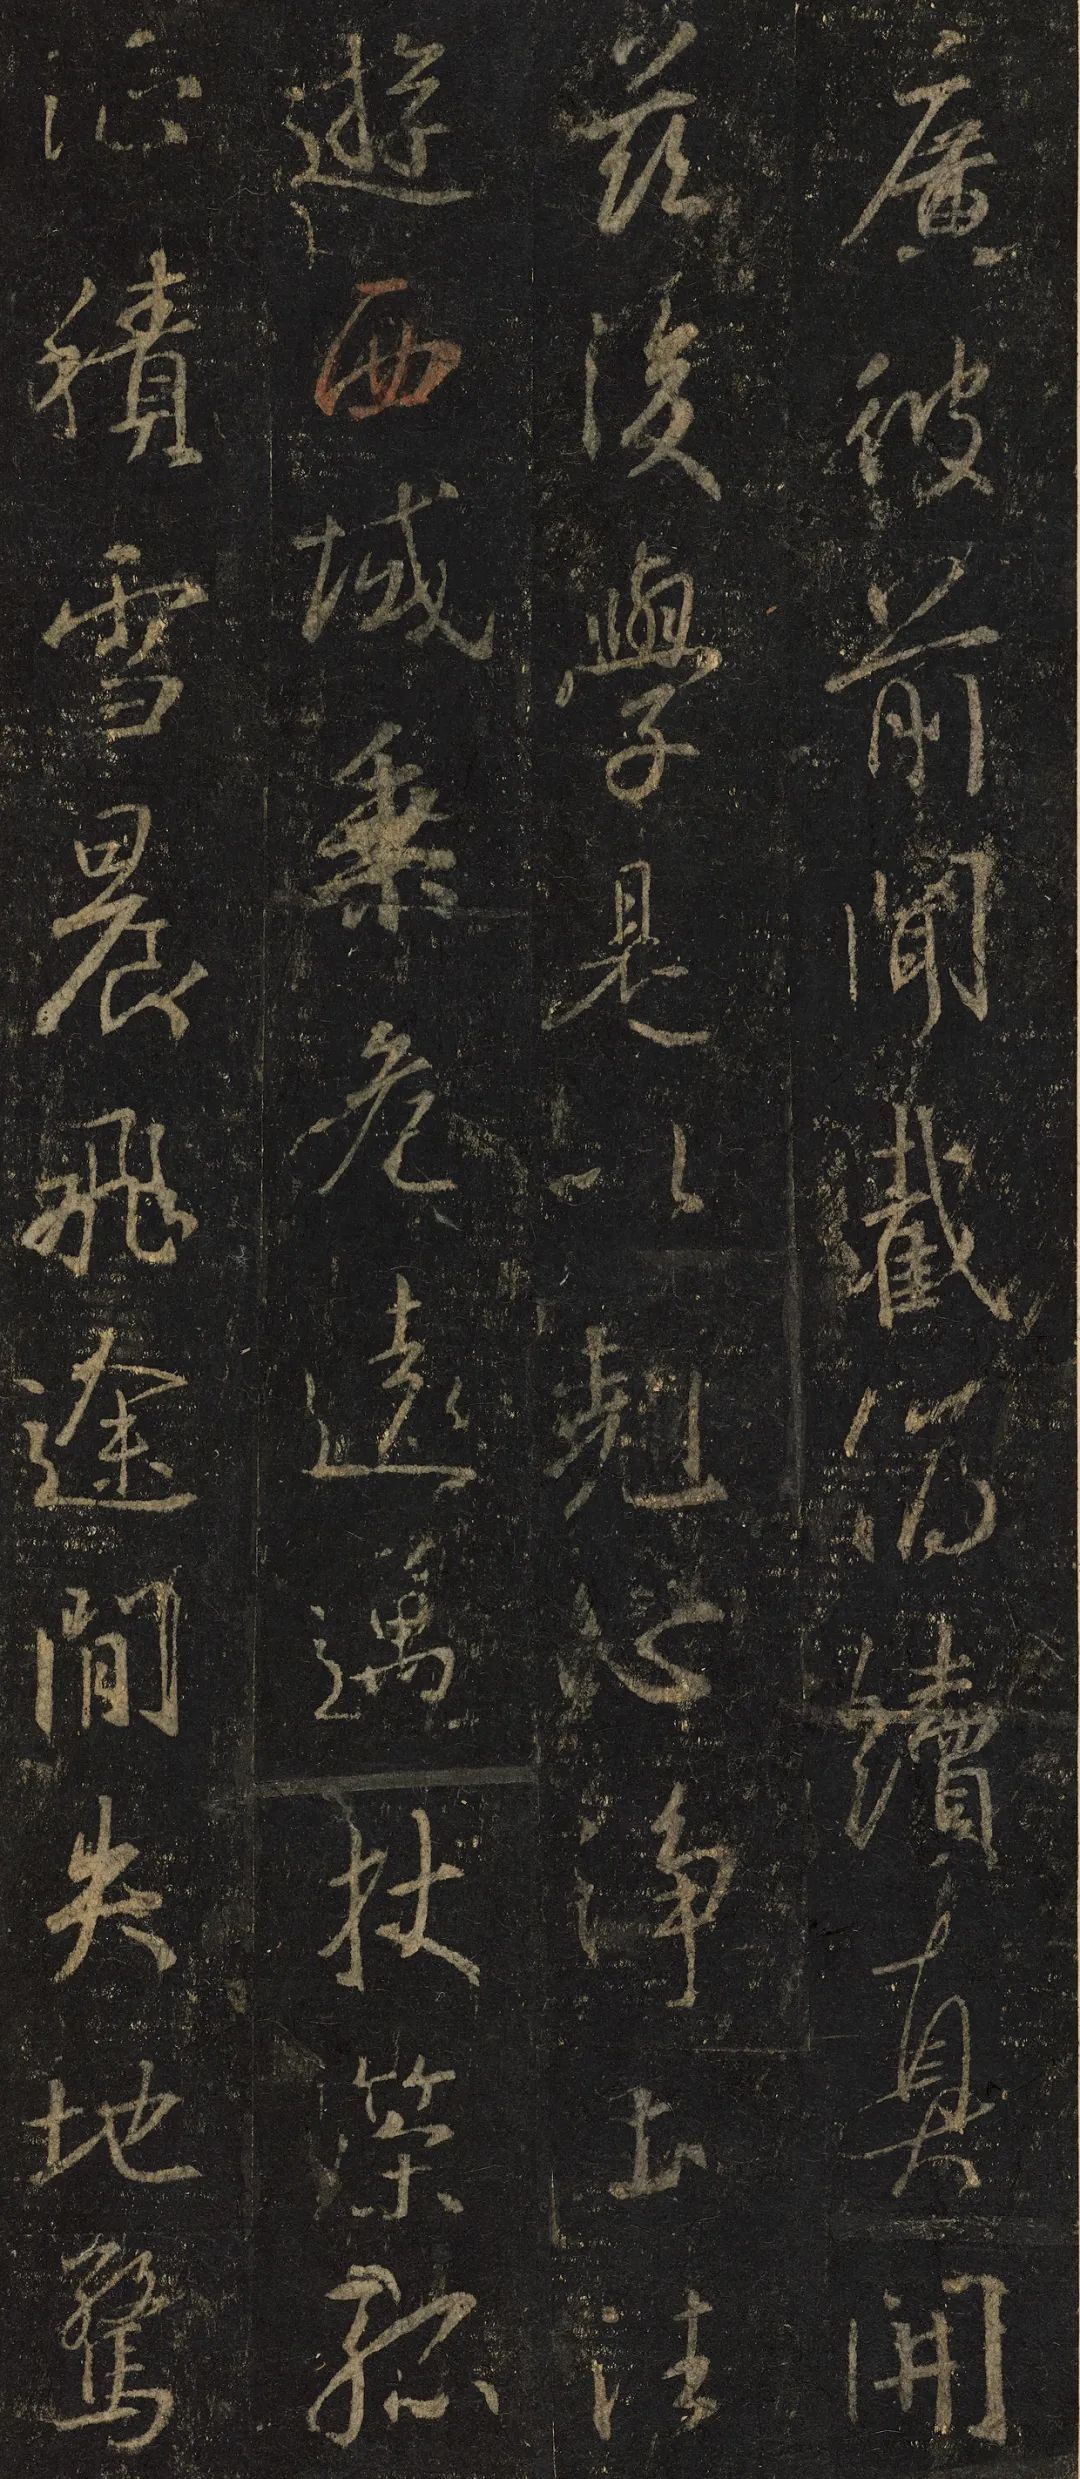 廣彼前聞截偽續真開
茲後學是以翹心淨土法
遊西域乘危遠邁杖策孤
征積雪晨飛途間失地驚